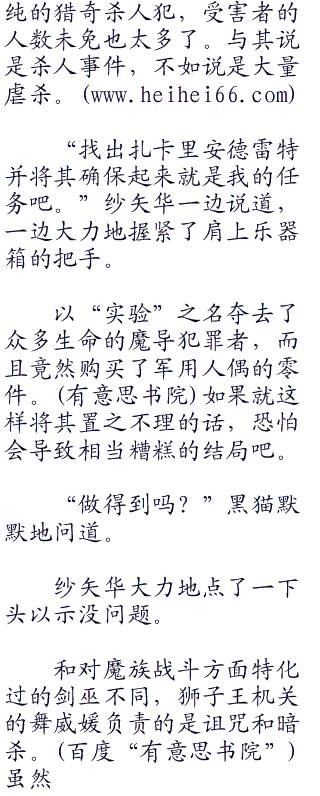 纯的猎奇杀人犯，受害者的
人数未免也太多了。与其说
是杀人事件，不如说是大量
虐杀。(www.heihei66.com)
“找出扎卡里安德雷特
并将其确保起来就是我的任
务吧。”纱矢华一边说道，
一边大力地握紧了肩上乐器
箱的把手。
以“实验”之名夺去了
众多生命的魔导犯罪者，而
且竟然购买了军用人偶的零
件。(有意思书院)如果就这
样将其置之不理的话，恐怕
会导致相当糟糕的结局吧。
“做得到吗？”黑猫默
默地问道。
纱矢华大力地点了一下
头以示没问题。
和对魔族战斗方面特化
过的剑巫不同，狮子王机关
的舞威媛负责的是诅咒和暗
杀。(百度“有意思书院”)
虽然